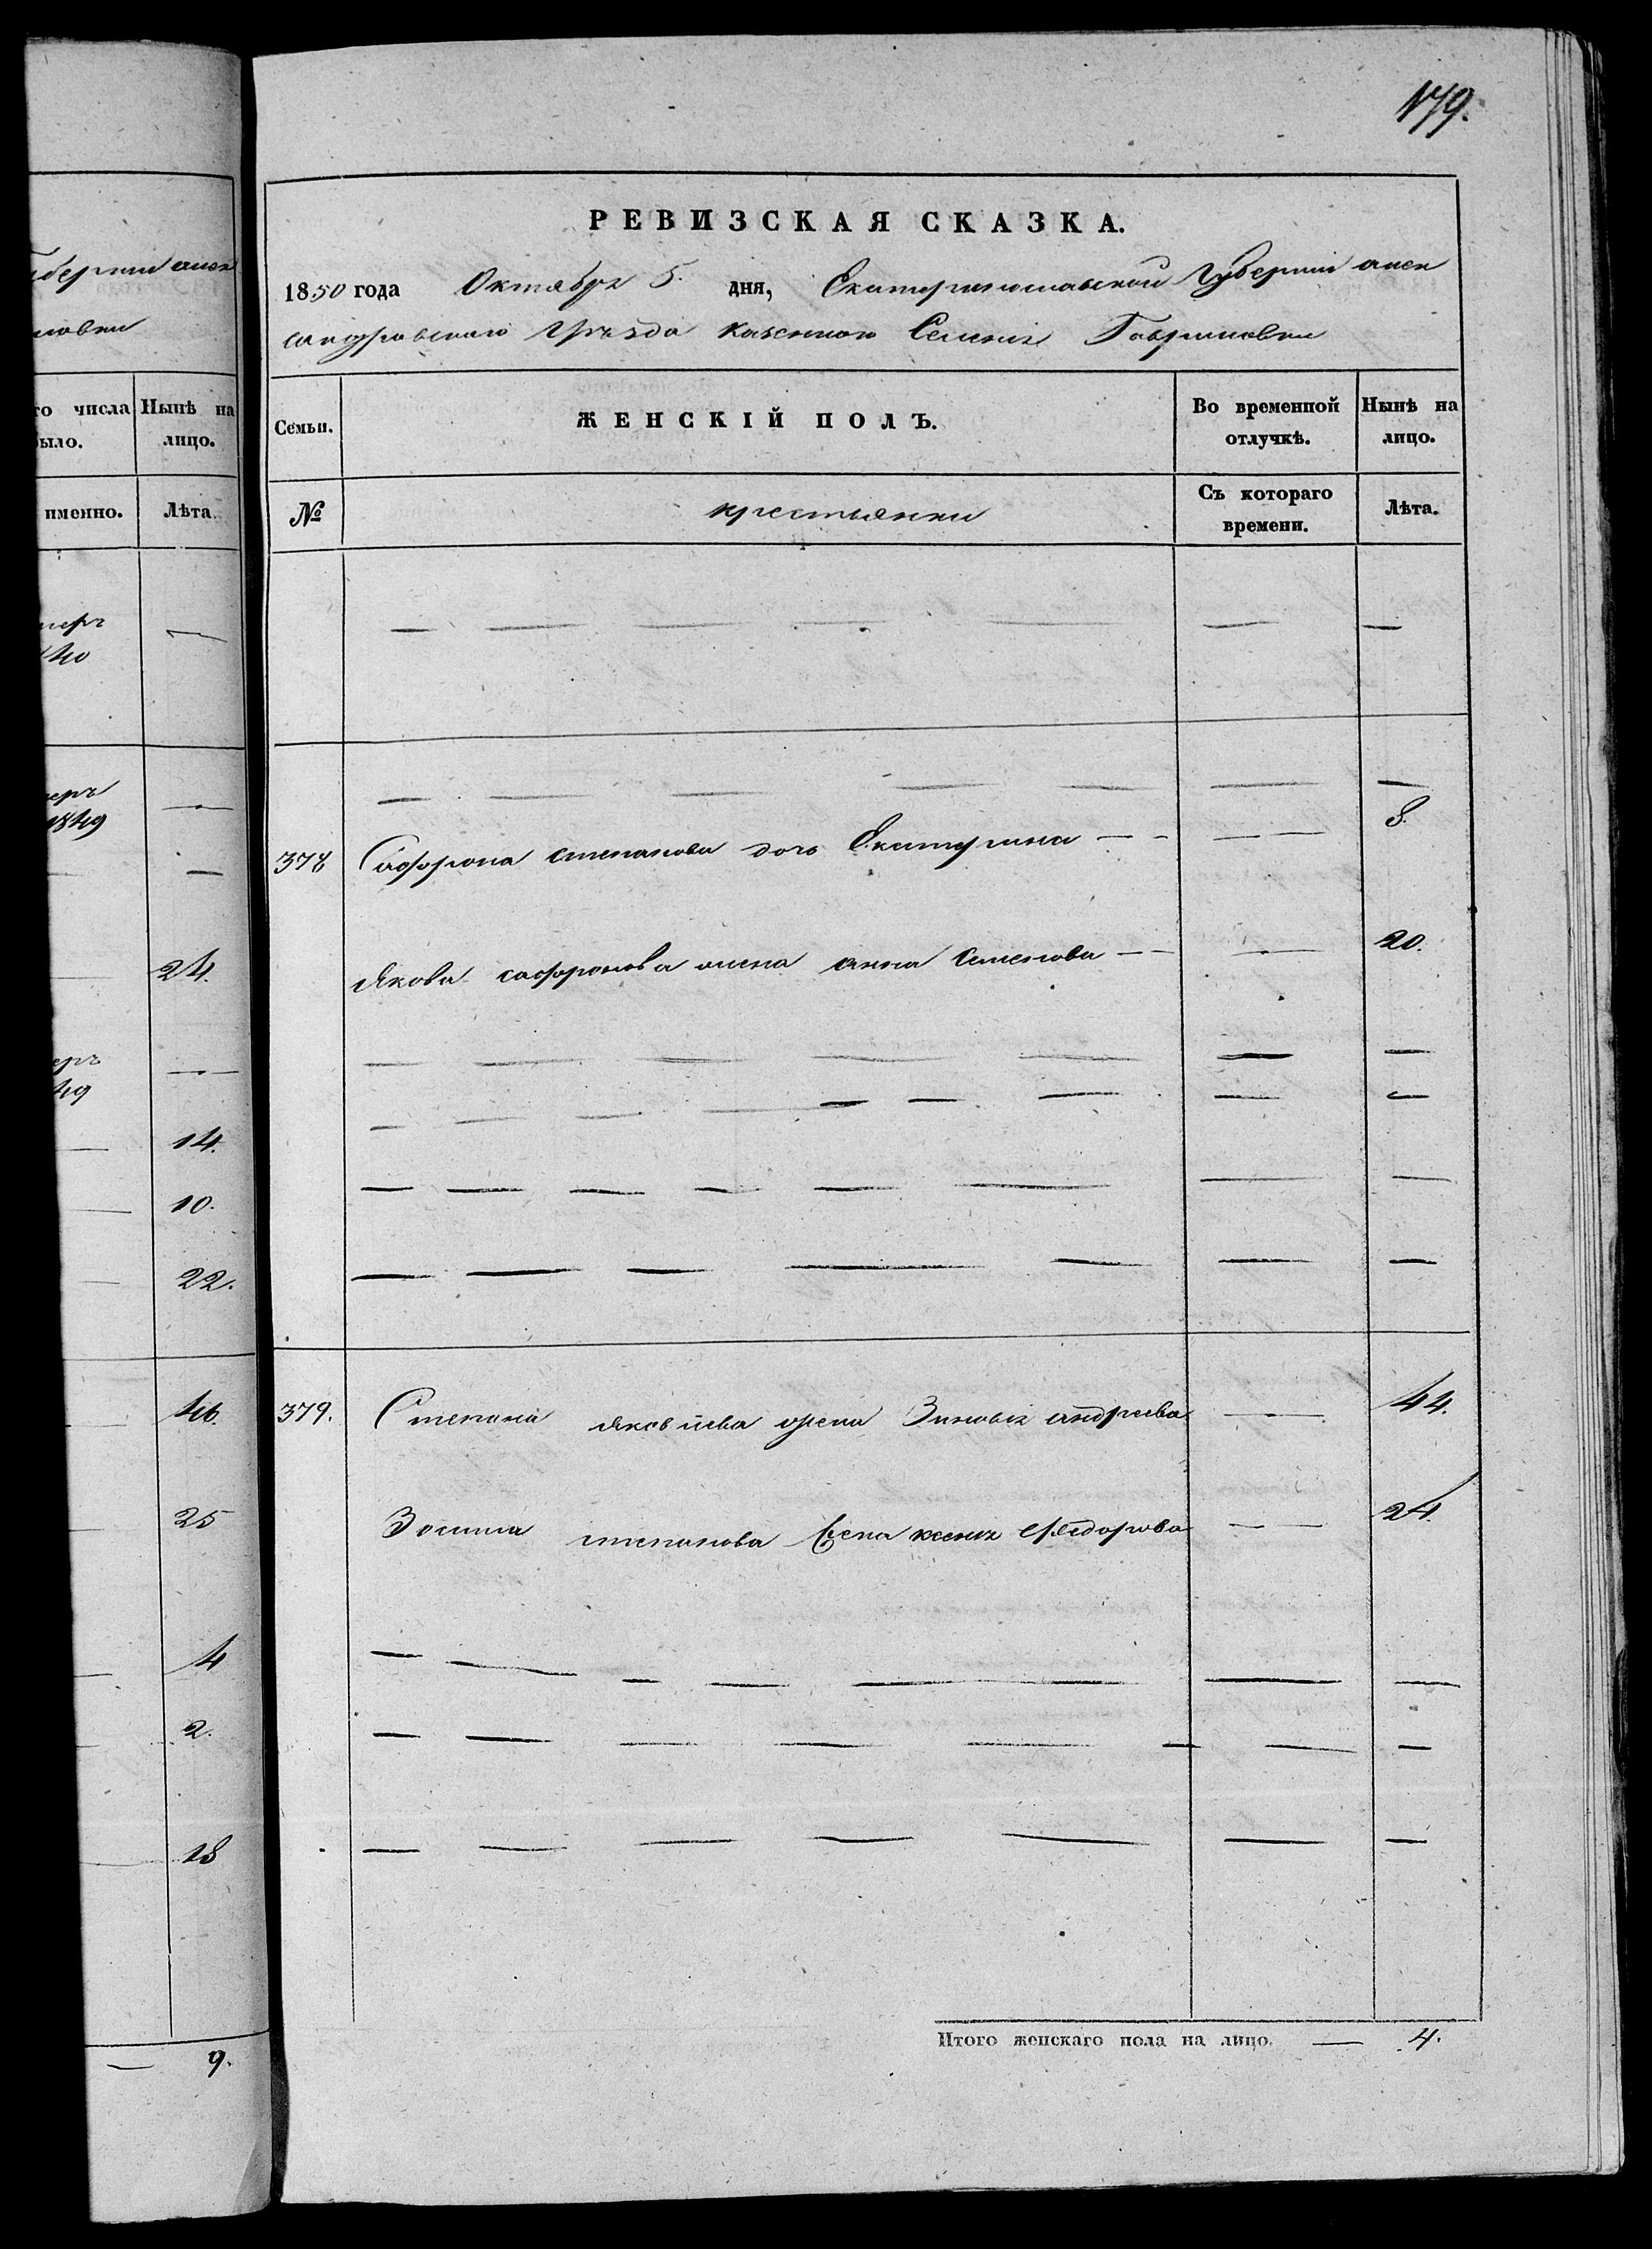 179.
РЕВИЗСКАЯ СКАЗКА.
1850 года Октября 5. дня, Екатеринославской Губернии алек
сандровского уѣзда казенного Селения Гавриловки
Семьи. ЖЕНСКІЙ ПОЛЪ. Во временной отлучкѣ. Нынѣ на лицо.
№ крестьянки Съ котораго времени. Лѣта.
— — — — — — —
— — — — — — —
378 Сафрона степанова дочь Екатерина — — — — 8.
Якова сафронова жена анна Семенова — — — 20.
— — — — — — —
— — — — — — — — —
— — — — — — — —
— — — — — — —
379. Степана яковлева жена Зиновья андреева — 44.
Зосима степанова жена ксенья Федорова — — 24.
— — — — — — — —
— — — — — — — —
— — — — — — —
Итого женскаго пола на лицо. — 4.
губернии алек
ловки
го числа было. Нынѣ на лицо.
именно. Лѣта.
мер
1840 —
меръ
1849 —
— —
— 24.
меръ
49 —
— 14.
— 10.
— 22.
46.
— 25
— 4
— 2.
— 18
— 9.